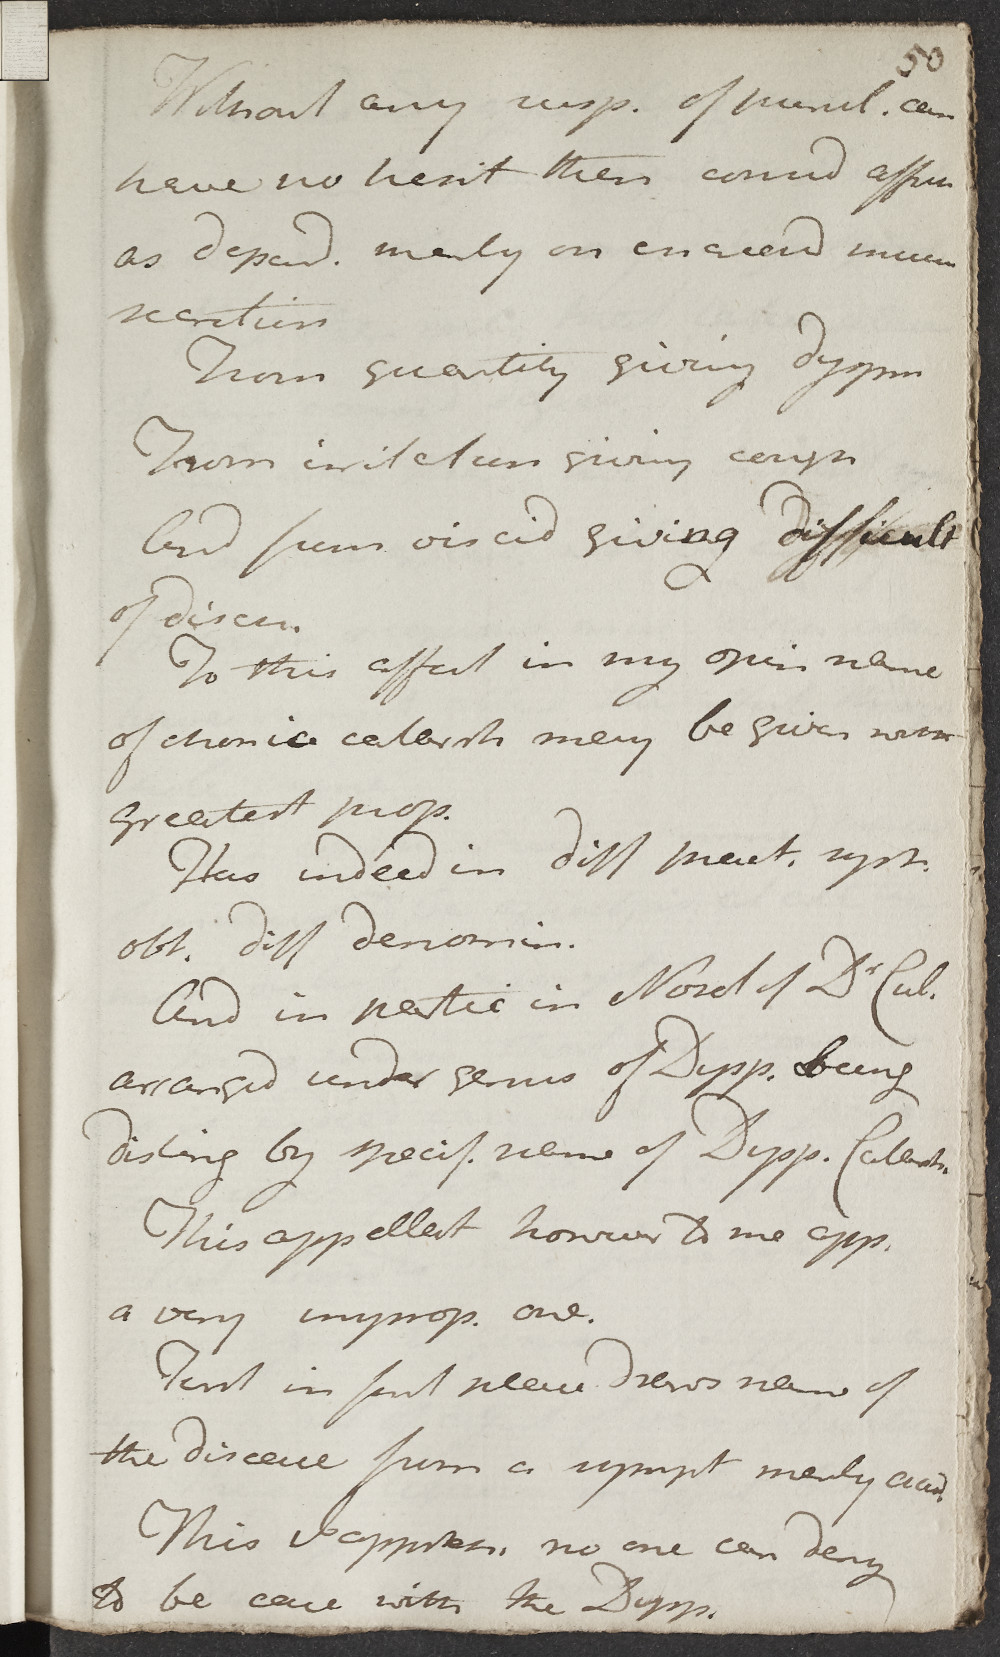 50
Without any susp. of purul. can
have no hesit then consid affec
as depend. merly on encreasd mucus
secretion
From quantity giving dyspn
From irritation giving cough
And from viscid giving difficult
of discu.
To this affect in my opin name
of chonic catarrh may be given with
greatest prop.
Has indeed in diff pract. syst.
obt. diff denomin.
And in partic in Nosol of Dr Cul.
arranged under genus of Dysp. being
disting by specif. name of Dysp. Catarrh.
This appellat however to me app.
a very improp. one.
First in first place draws name of
the disease from a sympt merly accid.
This no one can deny
to be case with the Dysp.